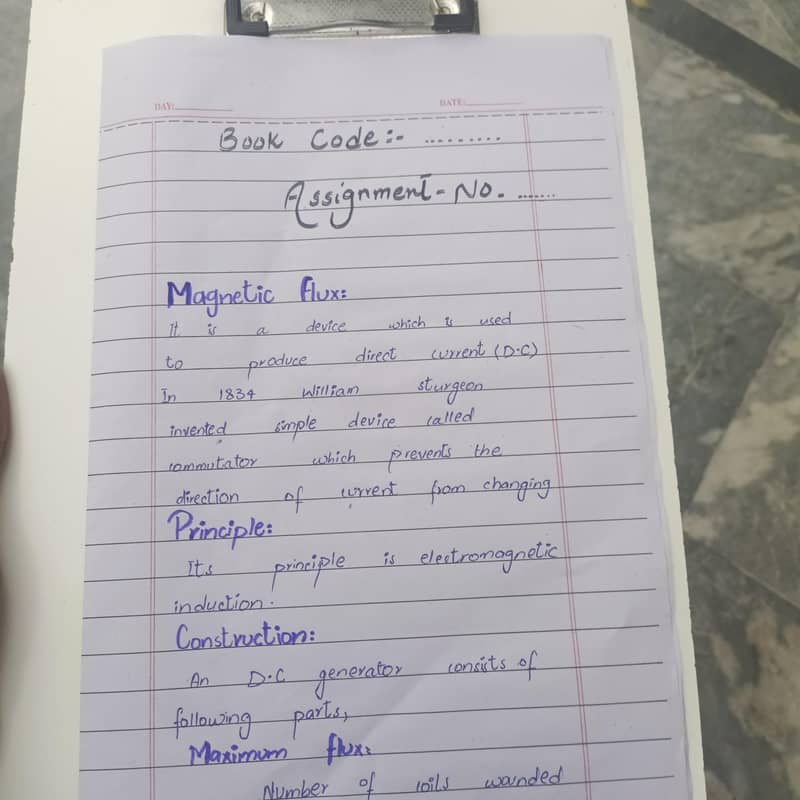 DAY:
DATE:
Book Code:- .........
Assignment- No. .......
Magnetic flux:
It is a device which is used
to produce direct current (D.C)
In 1834 William sturgeon
invented simple device called
commutator which prevents the
direction of current from changing
Principle:
Its principle is electromagnetic
induction.
Construction:
An D.C generator consits of
following parts,
Maximum flux:
Number of coils wounded